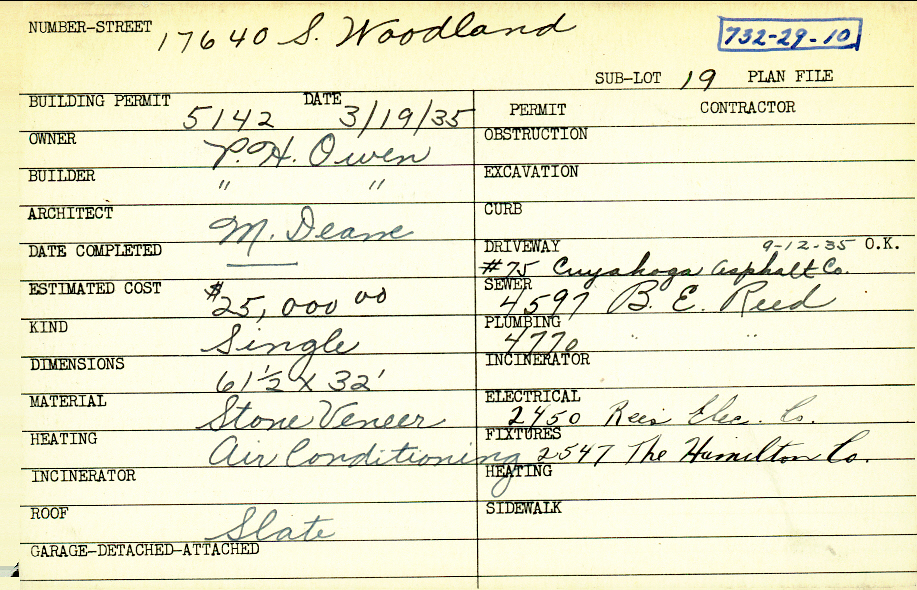 NUMBER-STREET 17640 S. Woodland 732-29-10
SUB-LOT 19 PLAN FILE
BUILDING PERMIT 5142 DATE 3/19/35
OWNER P. H. Owen
BUILDER " "
ARCHITECT M. Deane
DATE COMPLETED —
ESTIMATED COST $25,000 00
KIND Single
DIMENSIONS 61 1/2 x 32'
MATERIAL Stone Veneer
HEATING Air Conditioning
INCINERATOR
ROOF Slate
GARAGE-DETACHED-ATTACHED
PERMIT CONTRACTOR
OBSTRUCTION
EXCAVATION
CURB
DRIVEWAY 9-12-35 O.K.
#75 Cuyahoga Asphalt Co.
SEWER
4597 B. E. Reed
PLUMBING
4770 " "
INCINERATOR
ELECTRICAL
2450 Elec. Co.
FIXTURES
2547 The Hamilton Co.
HEATING
SIDEWALK